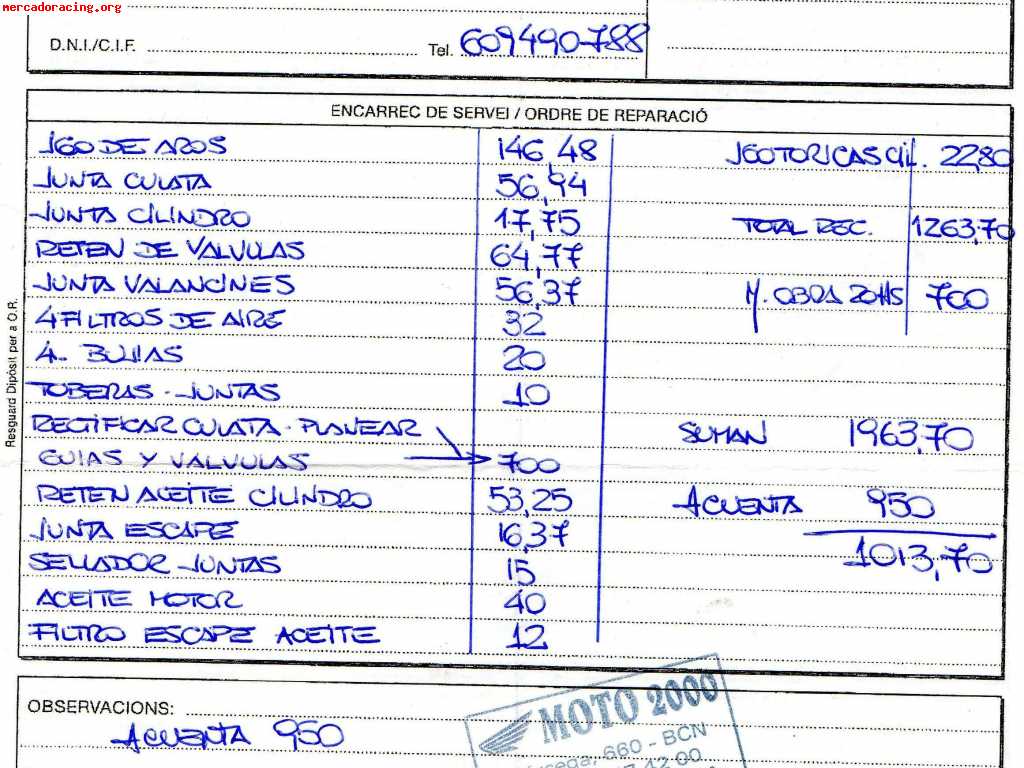 mercadoracing.org
D.N.I./C.I.F. Tel. 609490788
ENCARREC DE SERVEI / ORDRE DE REPARACIÓ
JGO DE AROS 146,48
JUNTA CULATA 56,94
JUNTA CILINDRO 17,75
RETEN DE VALVULAS 64,77
JUNTA VALANCINES 56,37
4 FILTROS DE AIRE 32
4 BUJIAS 20
TOBERAS - JUNTAS 10
RECTIFICAR CULATA - PLANEAR
GUIAS Y VALVULAS 700
RETEN ACEITE CILINDRO 53,25
JUNTA ESCAPE 16,37
SELLADOR JUNTAS 15
ACEITE MOTOR 40
FILTRO ESCAPE ACEITE 12
JGO TORICAS CIL. 22,80
TOTAL REC. 1263,70
M. OBRA 20HS 700
SUMAN 1963,70
ACUENTA 950
1013,70
Resguard Dipòsit per a O.R.
OBSERVACIONS:
ACUENTA 950
MOTO 2000
660 - BCN
42 00